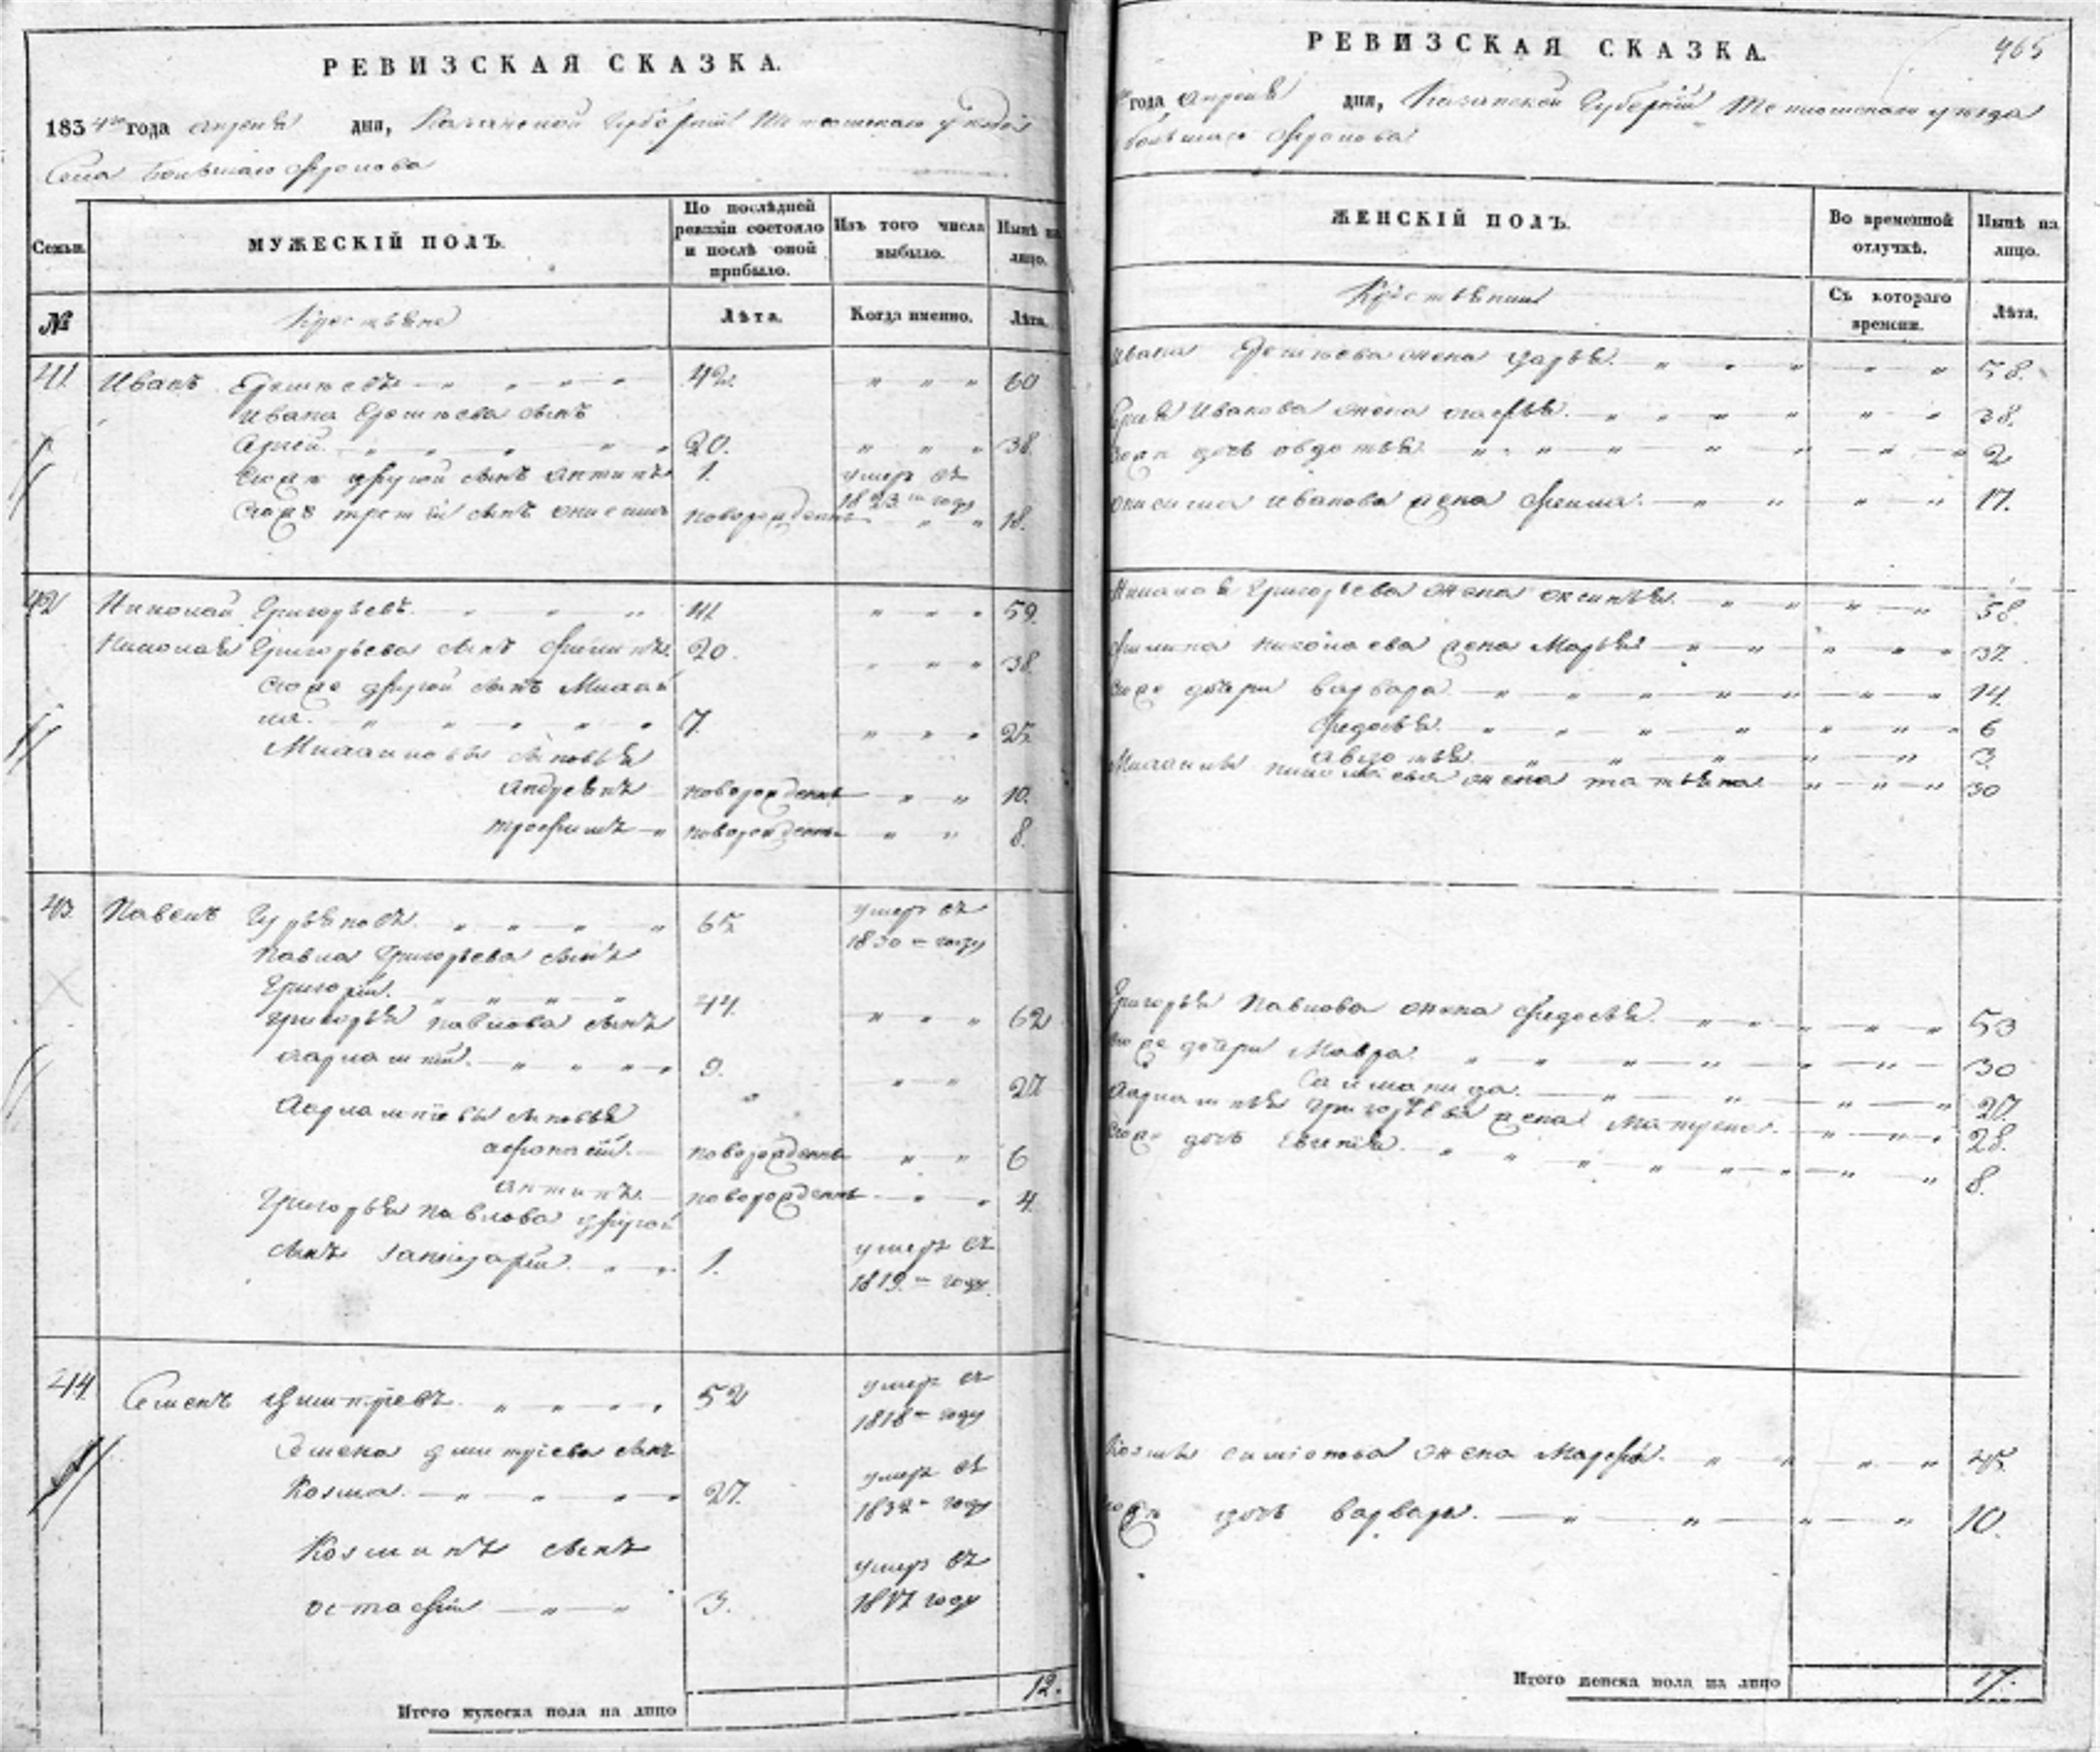 РЕВИЗСКАЯ СКАЗКА.
1834го года апреля дня, Казанской Губернии Тетюшскаго уезда
Села Большаго Фролова
Семьи.
МУЖЕСКІЙ ПОЛЪ.
По послѣдней ревизіи состояло и послѣ оной прибыло.
Изъ того числа выбыло.
Нынѣ на лицо.
№
Крестьяне
Лѣта.
Когда именно.
Лѣта.
41. Иванъ 42. " " " 60
Ивана сынъ
20. " " " 38.
Его же другой сынъ Антипъ 1. умеръ въ 1823м году
Его же третий сынъ Онисимъ новорожденъ " " 18.
42 Николай Григорьевъ. " " " 41 " " " 59.
Николая Григорьева сынъ Филипъ. 20. " " " 38
Его же другой сынъ Михай
ла. " " " " " 7. " " " 25.
Михайловы сыновья
Андреянъ новорожденъ " " 10.
Трофимъ " новорожденъ " " 8.
43. Павелъ Гурьяновъ. " " " " 65. умеръ въ 1830м году
Павла Григорьева сынъ
Григорий. " " " " 44. " " " 62
Григорья Павлова сынъ
" " " " 9. " " 27
сыновья
Афонасий. новорожденъ " " 6
Антипъ. новорожденъ " " 4.
Григорья Павлова другой
сынъ " " 1. умеръ въ 1819м году.
44. Семенъ Дмитриевъ. " " " " 52 умеръ въ 1818м году
Семена Дмитриева сынъ
Козма. " " " " 27. умеръ въ 1832м году
Козминъ сынъ
Остафий " " 3. умеръ въ 1817 году
Итого мужеска пола на лицо 12.
РЕВИЗСКАЯ СКАЗКА.
465
года апреля дня, Казанской Губернии Тетюшскаго уезда
Большаго Фролова
ЖЕНСКІЙ ПОЛЪ.
Во временной отлучкѣ.
Нынѣ на лицо.
Крестьянки
Съ котораго времени.
Лѣта.
Ивана жена Дарья. " " " " " 58.
Ивановa жена " " " " " " " 38.
дочь Овдотья " " " " " " " 2
Онисима Иванова жена Фекла. " " " " 17.
Николая Григорьева жена Оксинья. " " " " 58.
Филипа Николаева жена Марья " " " " 37.
Его же дочери Варвара. " " " " " " 14.
Федосья. " " " " " " " 6
Авдотья. " " " " " 3.
Михаилы Николаева жена Татьяна " " " 30
Григорья Павлова жена Федосья. " " " " " 53
Его же дочери Мавра. " " " " " " 30
" " " " 27.
Григорьева жена Матрена. " " " 28.
Его же дочь Евгения. " " " " " " " " 8.
Козмы Симионова жена Марфа. " " " " 45.
дочь Варвара. " " " " 10.
Итого женска пола на лицо 17.